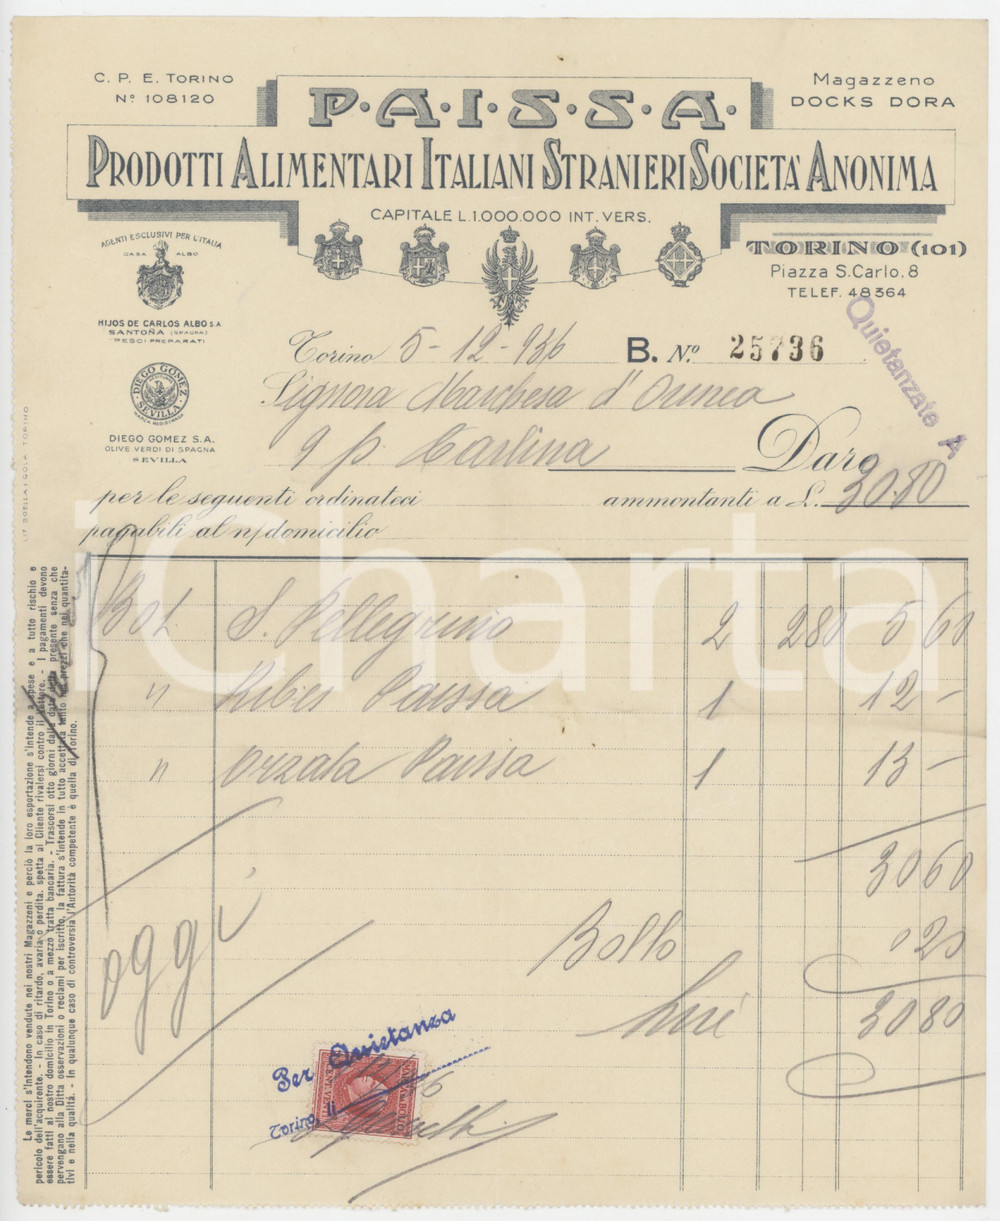 C. P. E. TORINO
Nº 108120
P·A·I·S·S·A·
Magazzeno
DOCKS DORA
PRODOTTI ALIMENTARI ITALIANI STRANIERI SOCIETA' ANONIMA
CAPITALE L.1.000.000 INT. VERS.
AGENTI ESCLUSIVI PER L'ITALIA
CASA ALBO
HIJOS DE CARLOS ALBO S.A
SANTOÑA (SPAGNA)
PESCI PREPARATI
TORINO (101)
Piazza S. Carlo, 8
TELEF. 48364
Quietanzate A
Torino 5-12-936 B. Nº 25736
DIEGO GOMEZ
SEVILLA
DIEGO GOMEZ S.A.
OLIVE VERDI DI SPAGNA
SEVILLA
Signora Marchesa d'
9 p. Carlina Dare
per le seguenti ordinateci ammontanti a L. 30.80
pagabili al n/domicilio
Bot. S. Pellegrino 2 280 5 60
" Ribes Paissa 1 12 -
" Orzata Paissa 1 13 -
30 60
Bollo 0 20
Lire 30 80
oggi
Per Quietanza
Torino li
iCharta
LIT. BOELLA I GOIA TORINO
Le merci s'intendono vendute nei nostri Magazzeni e perciò la loro esportazione s'intende a spese e a tutto rischio e
pericolo dell'acquirente. - In caso di ritardo, avaria o perdita, spetta al Cliente rivalersi contro il vettore. - I pagamenti devono
essere fatti al nostro domicilio in Torino o a mezzo tratta bancaria. - Trascorsi otto giorni dalla data della presente senza che
pervengano alla Ditta osservazioni o reclami per iscritto, la fattura s'intende in tutto accettata tanto nei prezzi che nei quantita-
tivi e nella qualità. - In qualunque caso di controversia l'Autorità competente è quella di Torino.